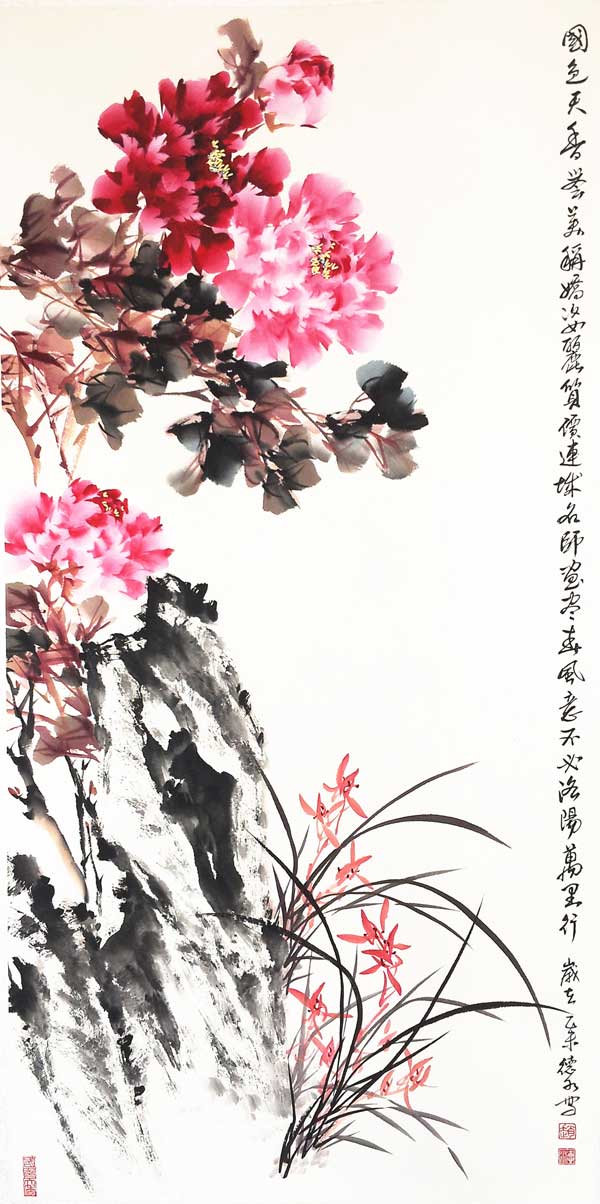 國色天香譽美稱嬌姿麗質價連城名師画尽春風意不必洛陽萬里行 歲在乙未德水寫